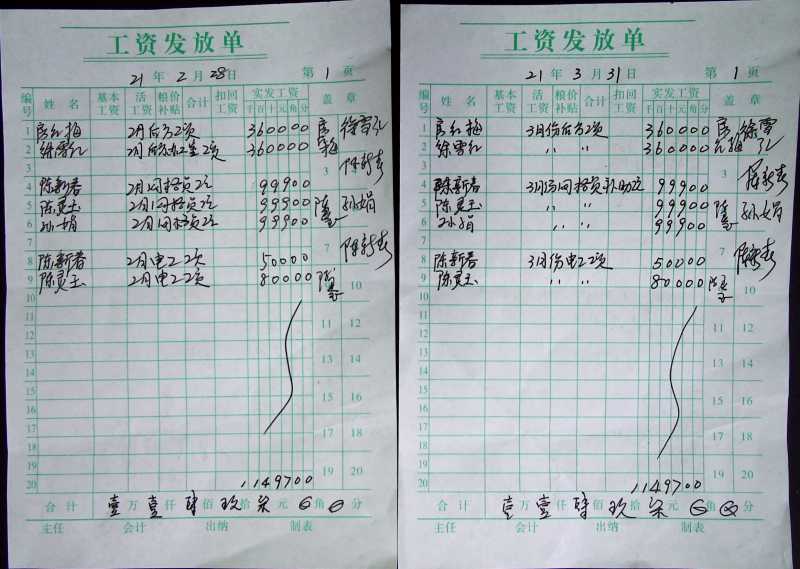 工资发放单
21 年 2 月 28 日 第 1 页
编号 姓名 基本工资 活工资 粮价补贴 合计 扣回工资 实发工资 千 百 十 元 角 分 盖章
1 红梅 2月后方工资 360000
2 徐雪红 2月 工资 360000 徐雪红
3
4 陈新春 2月网格员工资 99900 陈新春
5 陈灵玉 2月网格员工资 99900
6 孙娟 2月网格员工资 99900 孙娟
7
8 陈新春 2月电工工资 50000 陈新春
9 陈灵玉 2月电工工资 80000
10
11
12
13
14
15
16
17
18
19
20 1149700
合计 壹万壹仟肆佰玖拾柒元0角0分
主任 会计 出纳 制表
工资发放单
21 年 3 月 31 日 第 1 页
编号 姓名 基本工资 活工资 粮价补贴 合计 扣回工资 实发工资 千 百 十 元 角 分 盖章
1 红梅 3月份后方工资 360000
2 徐雪红 〃 〃 360000 徐雪红
3
4 陈新春 3月份网格员补助 99900 陈新春
5 陈灵玉 〃 〃 99900
6 孙娟 〃 〃 99900 孙娟
7
8 陈新春 3月份电工工资 50000 陈新春
9 陈灵玉 〃 〃 80000
10
11
12
13
14
15
16
17
18
19
20 1149700
合计 壹万壹仟肆佰玖拾柒元0角0分
主任 会计 出纳 制表